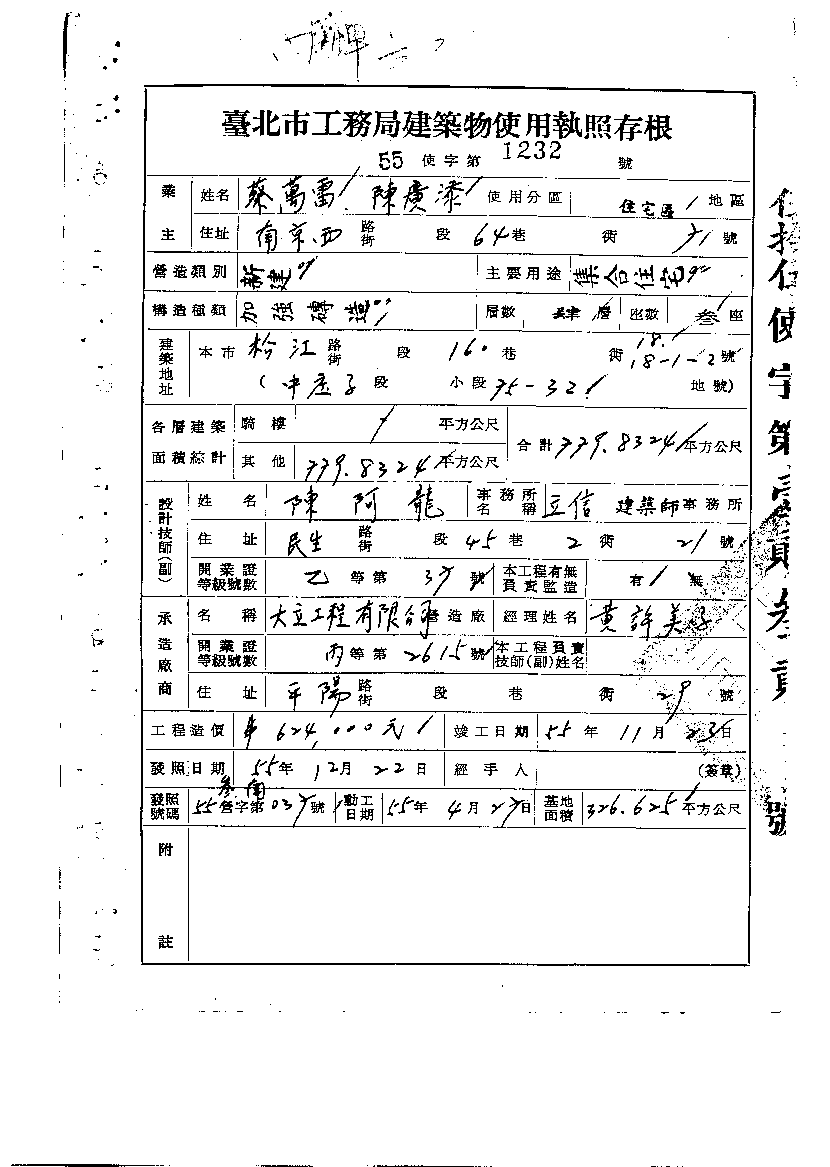 臺北市工務局建築物使用執照存根
55 使字第 1232 號
業主 姓名 蔡萬雷 陳廣添 使用分區 住宅區 地區
住址 南京西 路街 段 64 巷 街 號
營造類別 新建 主要用途 集合住宅
構造種類 加強磚造 層數 層 座數 叁 座
建築地址 本市 松江 路街 段 160 巷 街 18. 18-1-2 號
( 中庄子 段 小段 75-32 地號)
各層建築面積綜計 騎樓 平方公尺 合計 779.8324 平方公尺
其他 779.8324 平方公尺
設計技師(副) 姓名 陳阿龍 事務所名稱 立信 建築師事務所
住址 民生 路街 段 45 巷 2 街 21 號
開業證等級號數 乙 等第 號 本工程有無負責監造 有 無
承造廠商 名稱 大立工程有限公司 營造廠 經理姓名 黃許美
開業證等級號數 丙 等第 2615 號 本工程負責技師(副)姓名
住址 平陽 路街 段 巷 街 29 號
工程造價 624,000元 竣工日期 55 年 11 月 23 日
發照日期 55 年 12 月 22 日 經手人 (簽章)
發照號碼 55 營字第 號 動工日期 55 年 4 月 日 基地面積 326.625 平方公尺
附註
伍拾伍使字第壹貳叁貳號